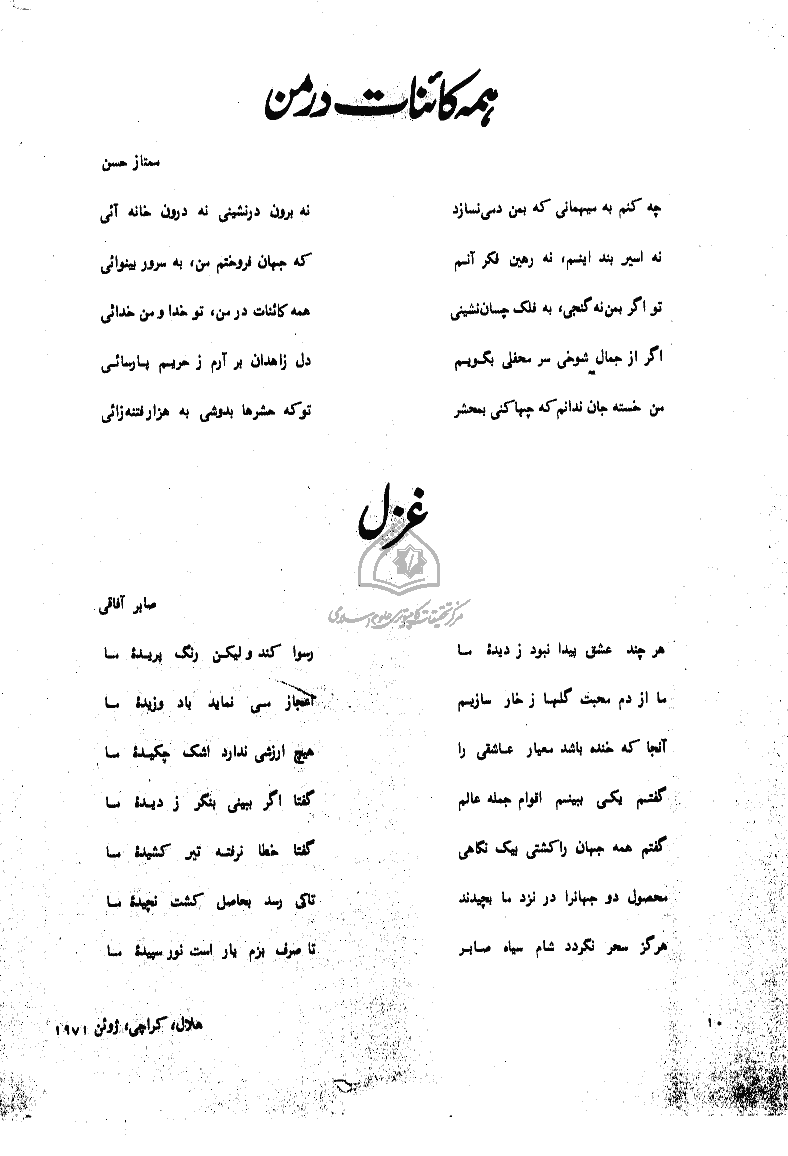 همه کائنات در من
ممتاز حسن
چه کنم به میهمانی که بمن دمی نسازد نه برون درنشینی نه درون خانه آئی
نه اسیر بند اینم، نه رهین فکر آنم که جهان فروختم من، به سرور بینوائی
تو اگر بمن نه گنجی، به فلک چسان نشینی همه کائنات در من، تو خدا و من خدائی
اگر از جمال شوخی سر محفلی بگویم دل زاهدان بر آرم ز حریم پارسائی
من خسته جان ندانم که چها کنی بمحشر توکه حشرها بدوشی به هزار فتنه زائی
غزل
مرکز تحقیقات کامپیوتری علوم اسلامی
صابر آفاقی
هر چند عشق پیدا نبود ز دیدۀ ما رسوا کند و لیکن رنگ پریدۀ ما
ما از دم محبت گلها ز خار سازیم اعجاز می نماید باد وزیدۀ ما
آنجا که خنده باشد معیار عاشقی را هیچ ارزشی ندارد اشک چکیدۀ ما
گفتم یکی ببینم اقوام جمله عالم گفتا اگر ببینی بنگر ز دیدۀ ما
گفتم همه جهان راکشتی بیک نگاهی گفتا خطا نرفته تیر کشیدۀ ما
محصول دو جهانرا در نزد ما بچیدند تاکی رسد بحاصل کشت نچیدۀ ما
هرگز سحر نگردد شام سیاه صابر تا صرف بزم یار است نور سپیدۀ ما
۱۰
هلال، کراچی، ژوئن ۱۹۷۱